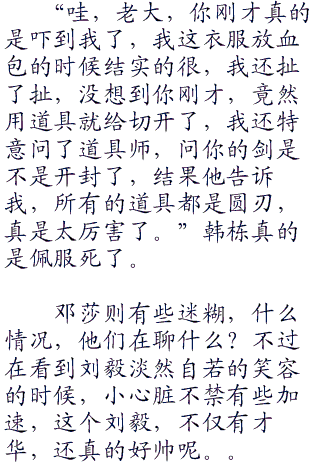 “哇，老大，你刚才真的
是吓到我了，我这衣服放血
包的时候结实的很，我还扯
了扯，没想到你刚才，竟然
用道具就给切开了，我还特
意问了道具师，问你的剑是
不是开封了，结果他告诉
我，所有的道具都是圆刃，
真是太厉害了。”韩栋真的
是佩服死了。
邓莎则有些迷糊，什么
情况，他们在聊什么？不过
在看到刘毅淡然自若的笑容
的时候，小心脏不禁有些加
速，这个刘毅，不仅有才
华，还真的好帅呢。。